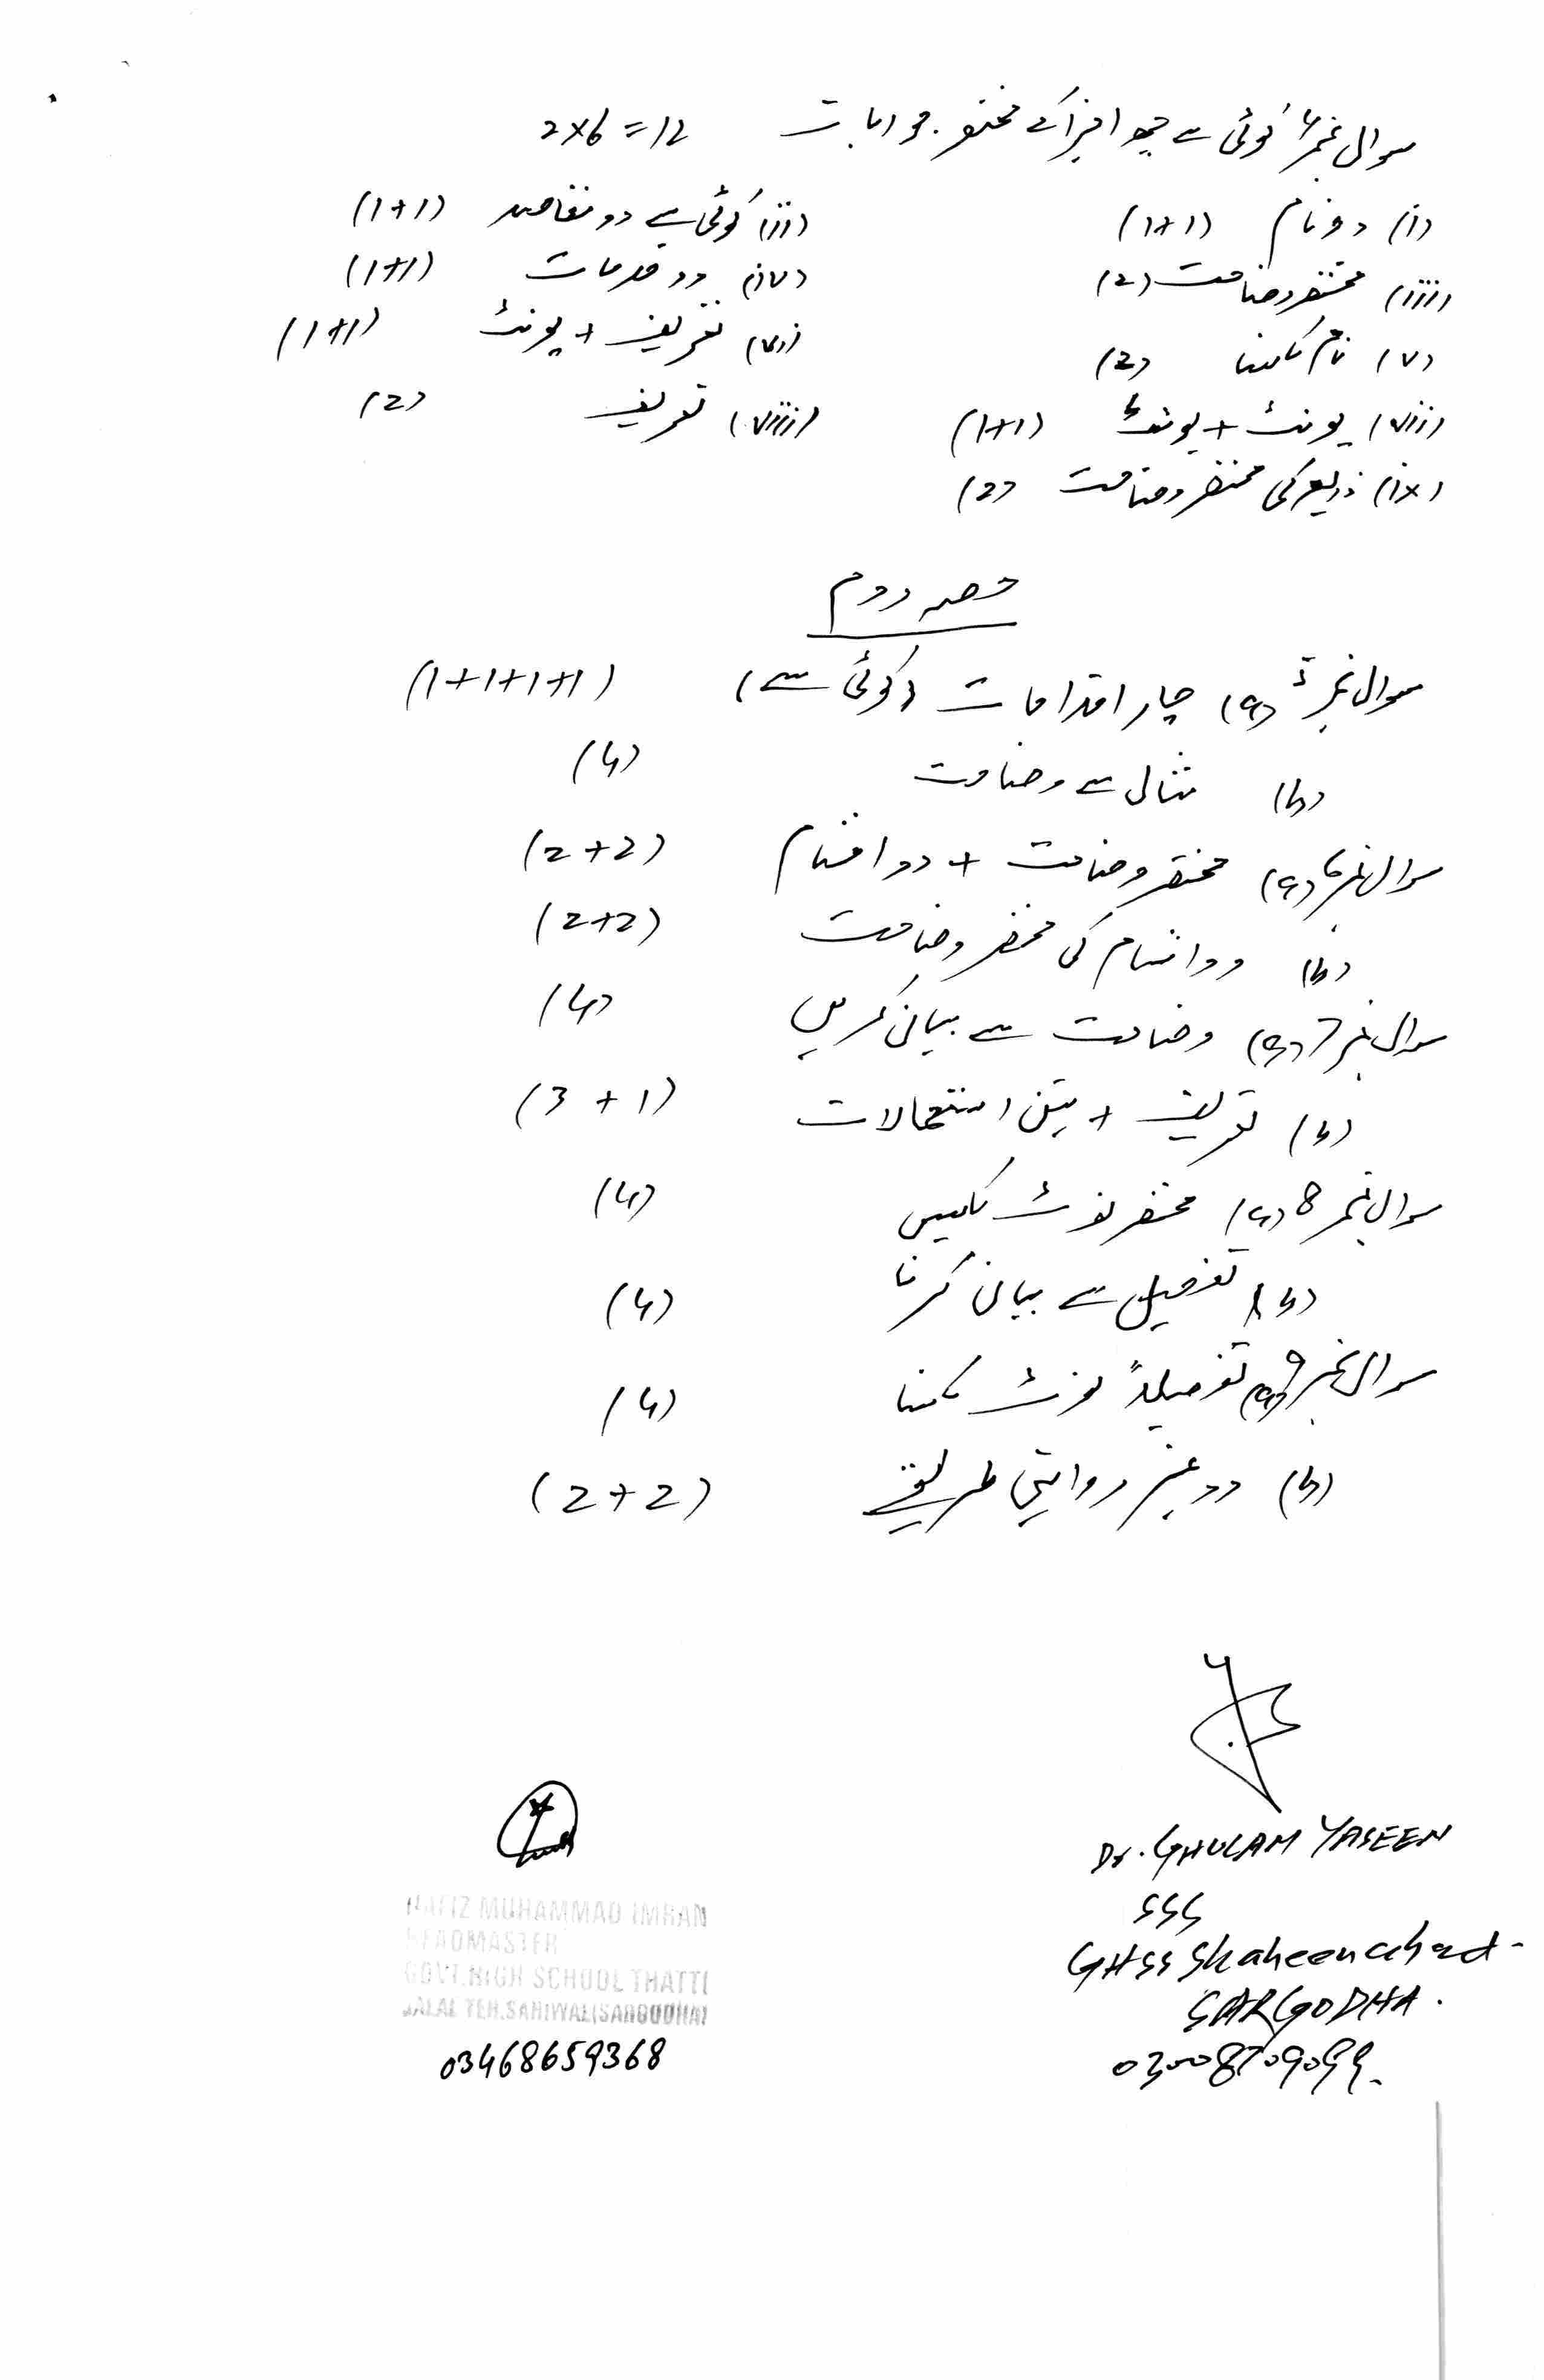 سوال نمبر ۴ کوئی سے چھ اجزا کے مختصر جوابات 2x6=12
(i) دو نام (1+1) (ii) کوئی سے دو مقاصد (1+1)
(iii) مختصر وضاحت (2) (iv) دو خدمات (1+1)
(v) نام لکھنا (2) (vi) تعریف + یونٹ (1+1)
(vii) یونٹ + یونٹ (1+1) (viii) تعریف (2)
(ix) ذریعہ کی مختصر وضاحت (2)
حصہ دوم
سوال نمبر ۵ (a) چار اقدامات (کوئی سے) (1+1+1+1)
(b) مثال سے وضاحت (4)
سوال نمبر ۶ (a) مختصر وضاحت + دو اقسام (2+2)
(b) دو اقسام کی مختصر وضاحت (2+2)
سوال نمبر 7 (a) وضاحت سے بیان کریں (4)
(b) تعریف + تین استعمالات (3+1)
سوال نمبر 8 (a) مختصر نوٹ لکھیں (4)
(b) تفصیل سے بیان کرنا (4)
سوال نمبر 9 (a) تفصیلاً نوٹ لکھنا (4)
(b) دو غیر روایتی طریقے (2+2)
Dr. GHULAM YASEEN
SSS
GHSS Shaheenabad.
SARGODHA.
03008709099.
HAFIZ MUHAMMAD IMRAN
HEADMASTER
GOVT.HIGH SCHOOL THATTI
JALAL TEH.SAHIWAL(SARGODHA)
03468659368